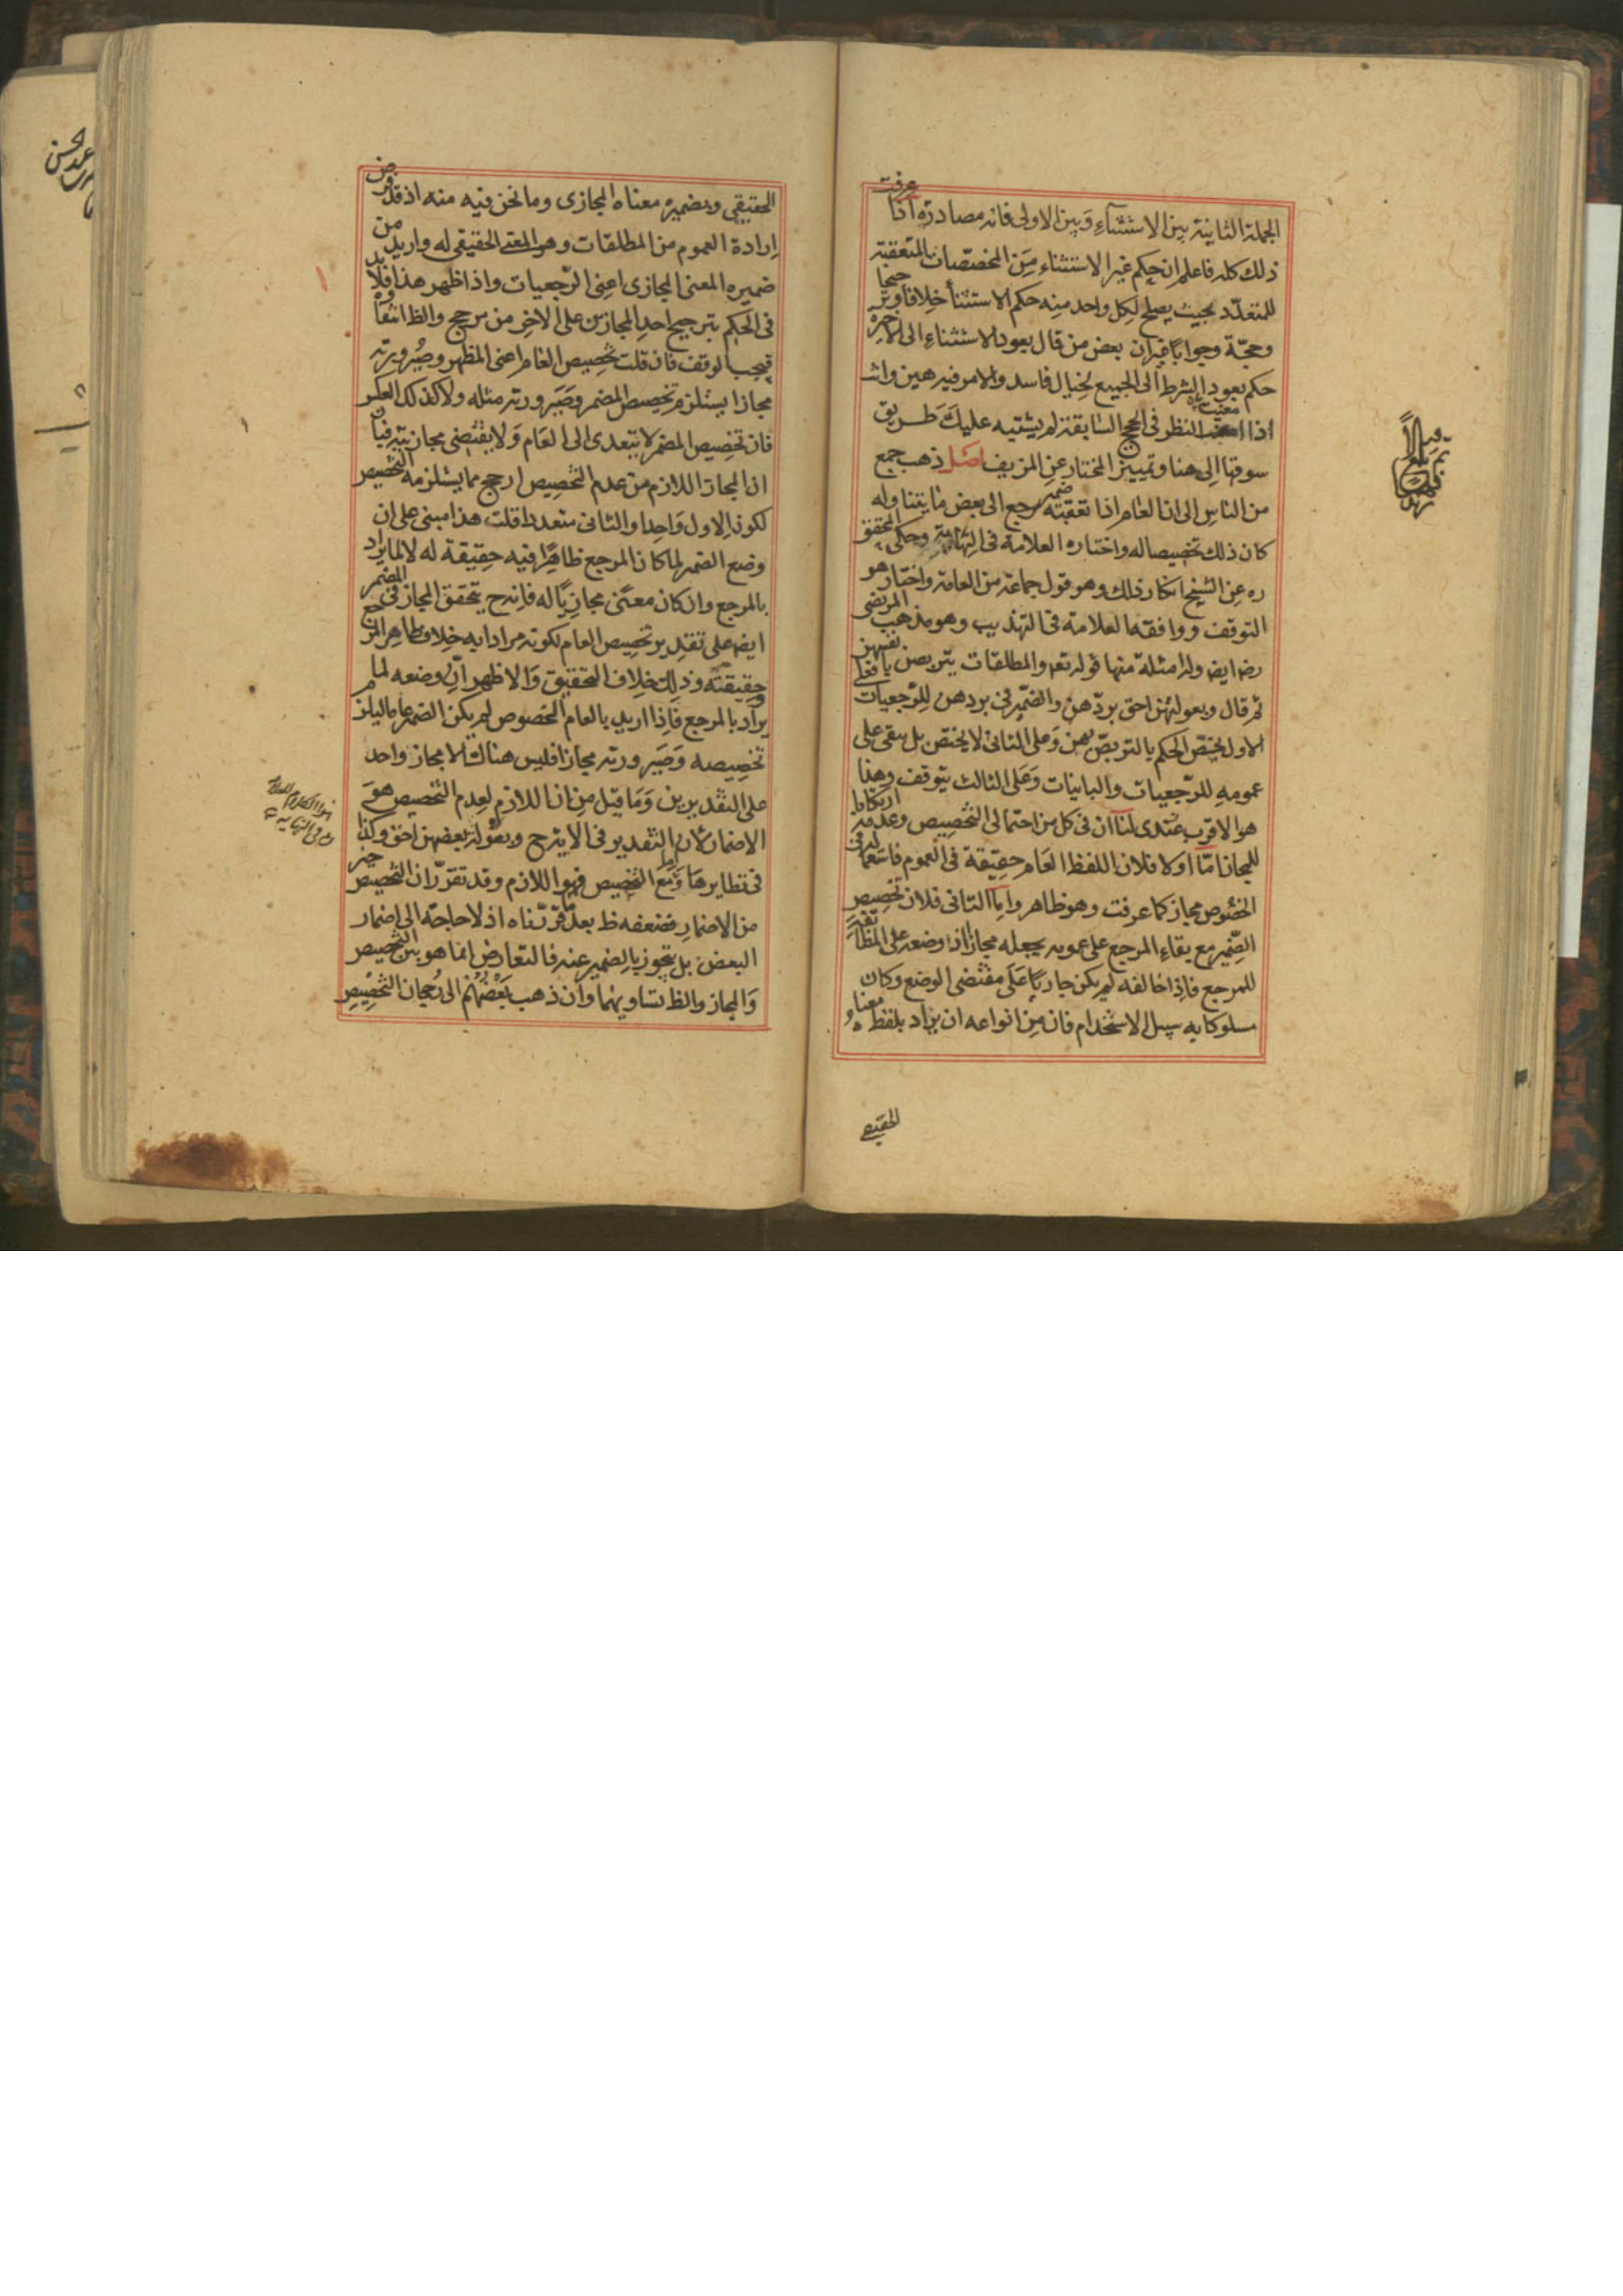 الجملة الثانية بين الاستثناء وبين الاولى فانه مصادرة اذا عرفت
ذلك كله فاعلم ان حكم غير الاستثناء من المخصصات المتعقبة
للمتعدد بحيث يصلح لكل واحد منه حكم الاستثناء خلافا وترجيحا
وحجة وجوابا غير ان بعض من قال بعود الاستثناء الى الاخيرة
حكم بعود الشرط الى الجميع لخيال فاسد والامر فيه هين وانت
اذا امعنت النظر فى الحجج السابقة لم يشتبه عليك طريق
سوقها الى هنا وتمييز المختار عن المزيف اصل ذهب جمع
من الناس الى ان العام اذا تعقبه ضمير يرجع الى بعض ما يتناوله
كان ذلك تخصيصا له واختاره العلامة فى النهاية وحكى المحقق
ره عن الشيخ انكار ذلك وهو قول جماعة من العامة واختار هو
التوقف ووافقه العلامة فى التهذيب وهو مذهب المرتضى
رض ايض وله امثلة منها قوله تعم والمطلقات يتربصن بانفسهن
ثم قال وبعولتهن احق بردهن والضمير فى بردهن للرجعيات فعلى
الاول يختص الحكم بالتربص بهن وعلى الثانى لا يختص بل يبقى على
عمومه للرجعيات والباينات وعلى الثالث يتوقف وهذا
هو الاقرب عندى لنا ان فى كل من احتمالى التخصيص وعدمه ارتكابا
للمجاز اما اولا فلان اللفظ العام حقيقة فى العموم فاستعماله فى
الخصوص مجاز كما عرفت وهو ظاهر واما الثانى فلان تخصيص
الضمير مع بقاء المرجع على عمومه يجعله مجازا اذ وضعه على المطابقة
للمرجع فاذا خالفه لم يكن جاريا على مقتضى الوضع وكان
مسلوكا به سبيل الاستخدام فان من انواعه ان يراد بلفظ معناه
الحقيقى
الحقيقى وبضميره معناه المجازى وما نحن فيه منه اذ قد فرض
ارادة العموم من المطلقات وهو المعنى الحقيقى له واريد من
ضميره المعنى المجازى اعنى الرجعيات واذا ظهر هذا فلا بد
فى الحكم بترجيح احد المجازين على الاخر من مرجح والظ انتفاؤه
فيجب الوقف فان قلت تخصيص العام اعنى المظهر وصيرورته
مجازا يستلزم تخصيص المضمر وصيرورته مثله ولا كذلك العكس
فان تخصيص المضمر لا يتعدى الى العام ولا يقتضى مجازيته فبان
ان المجاز اللازم من عدم التخصيص ارجح مما يستلزمه التخصيص
لكون الاول واحدا والثانى متعددا قلت هذا مبنى على ان
وضع الضمير لما كان المرجع ظاهرا فيه حقيقة له لا لما يراد
بالمرجع وان كان معنى مجازيا له فانه ح يتحقق المجاز فى المضمر
ايض على تقدير تخصيص العام لكونه مرادا به خلاف ظاهر المرجع
وحقيقته وذلك خلاف التحقيق والاظهر ان وضعه لما
يراد بالمرجع فاذا اريد بالعام الخصوص لم يكن الضمير عاما ليلزم
تخصيصه وصيرورته مجازا فليس هناك الا مجاز واحد
على التقديرين وما قيل من ان اللازم لعدم التخصيص هو
الاضمار لان التقدير فى الاية ح وبعولة بعضهن احق وكذا
فى نظايرها واما مع التخصيص فهو اللازم وقد تقرر ان التخصيص خير
من الاضمار فضعفه ظ بعد ما قررناه اذ لا حاجة الى اضمار
البعض بل يتجوز بالضمير عنه فالتعارض انما هو بين التخصيص
والمجاز والظ تساويهما وان ذهب بعضهم الى رجحان التخصيص